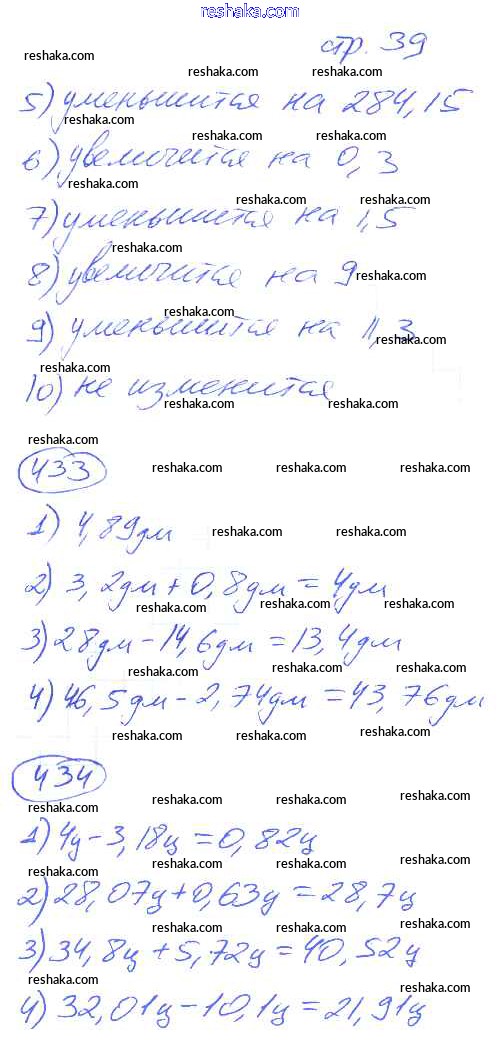 reshaka.com
стр. 39
5) уменьшится на 284,15
6) увеличится на 0,3
7) уменьшится на 1,5
8) увеличится на 9
9) уменьшится на 11,3
10) не изменится
433
1) 4,89дм
2) 3,2дм + 0,8дм = 4дм
3) 28дм - 14,6дм = 13,4дм
4) 46,5дм - 2,74дм = 43,76дм
434
1) 4ц - 3,18ц = 0,82ц
2) 28,07ц + 0,63ц = 28,7ц
3) 34,8ц + 5,72ц = 40,52ц
4) 32,01ц - 10,1ц = 21,91ц